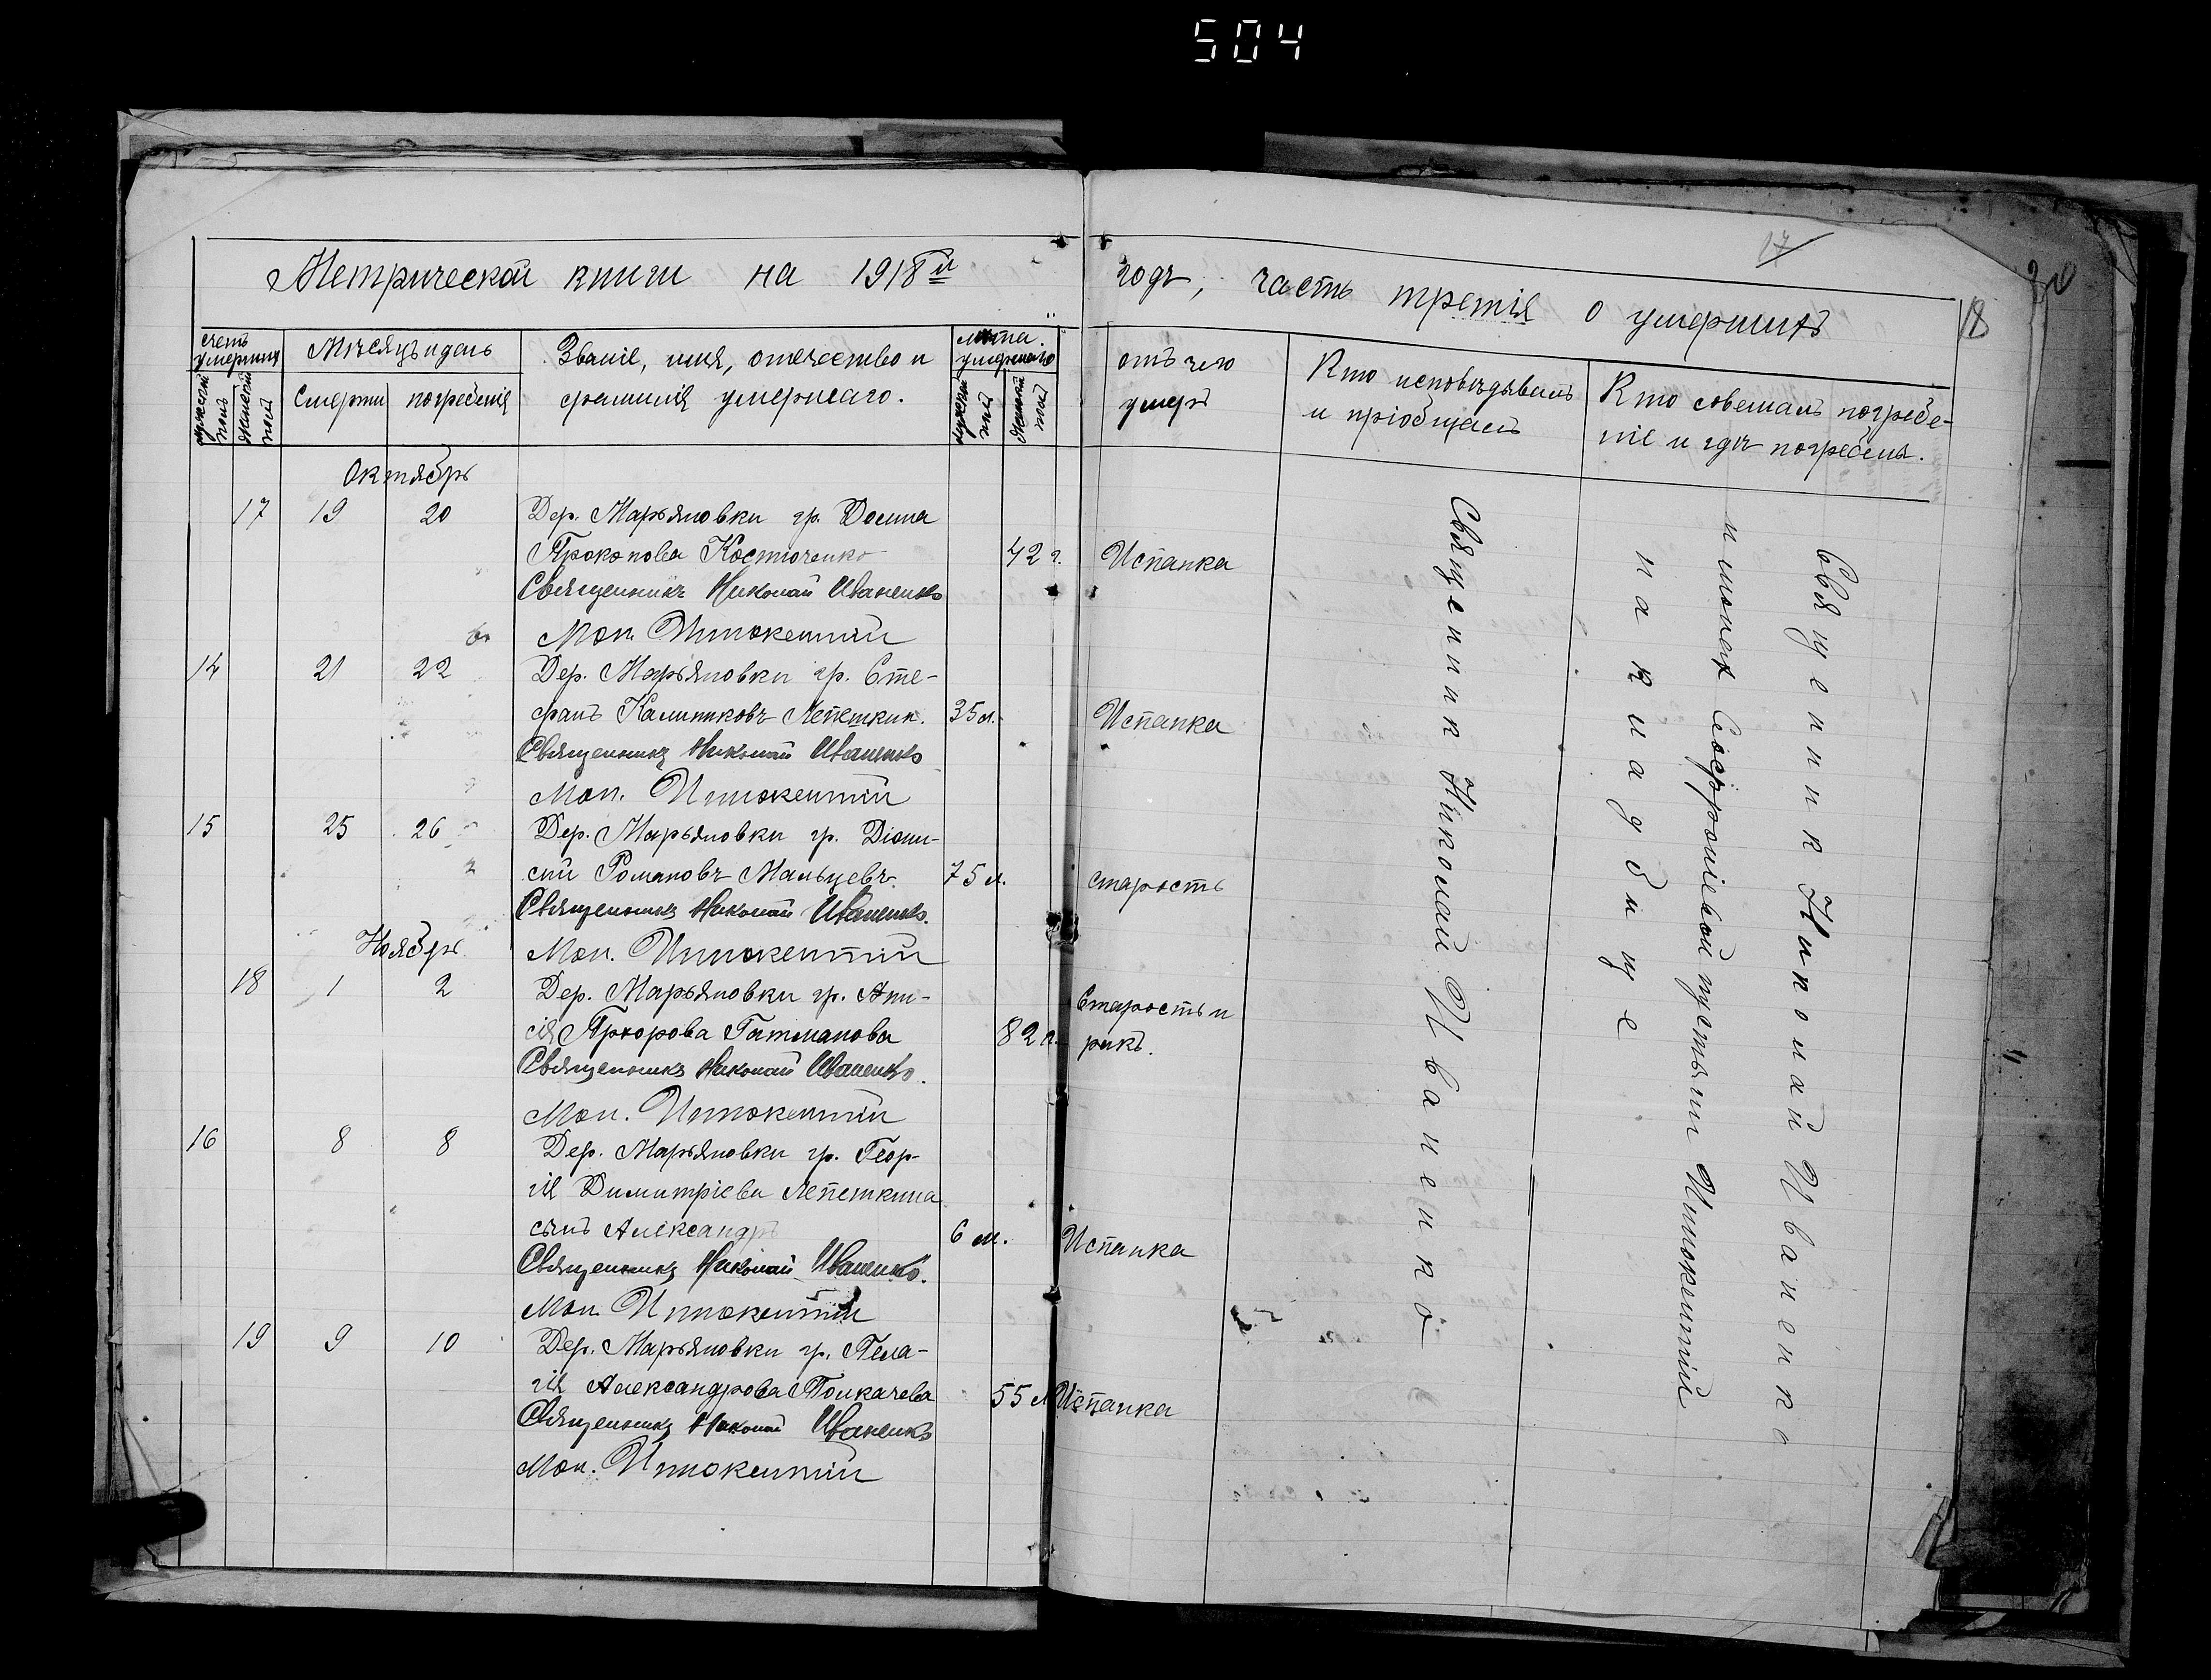 504
Метрической книги на 1918й
годъ, часть третія о умершихъ
17
18
счетъ умершихъ
мужеской полъ
женской полъ
Мѣсяцъ и день
Смерти
погребенія
Званіе, имя, отечество и
фамилія умершаго.
лѣта умершаго
мужеской полъ
женской полъ
отъ чего
умеръ
Кто исповѣдывалъ
и пріобщалъ
Кто совешалъ погребе-
ніе и гдѣ погребены.
Октябрь
17 19 20 Дер. Марьяновки гр. Домна
Прокопова Костюченко 42 г. Испанка
Священникъ Николай Иваненко
Мон. Иннокентій
14 21 22 Дер. Марьяновки гр. Сте-
фанъ Калиниковъ Лепешкин. 35 л. Испанка
Священникъ Николай Иваненко
Мон. Иннокентій
15 25 26 Дер. Марьяновки гр. Діони-
сій Романовъ Мальцевъ. 75 л. старость
Священникъ Николай Иваненко.
Ноябрь Мон. Иннокентій
18 1 2 Дер. Марьяновки гр. Ани-
сія Прохорова Гатманова 82 л. Старость и
ракъ.
Священникъ Николай Иваненко.
Мон. Иннокентій
16 8 8 Дер. Марьяновки гр. Геор-
гія Димитріева Лепешкина
сынъ Александръ 6 м. Испанка
Священникъ Николай Иваненко.
Мон. Иннокентій
19 9 10 Дер. Марьяновки гр. Пела-
гія Александрова Толкачева 55 л Испанка
Священникъ Николай Иваненко
Мон. Иннокентій
Священник Николай Иваненко
Священник Николай Иваненко
и монах Софроніевой пустыни Иннокентій
на кладбище